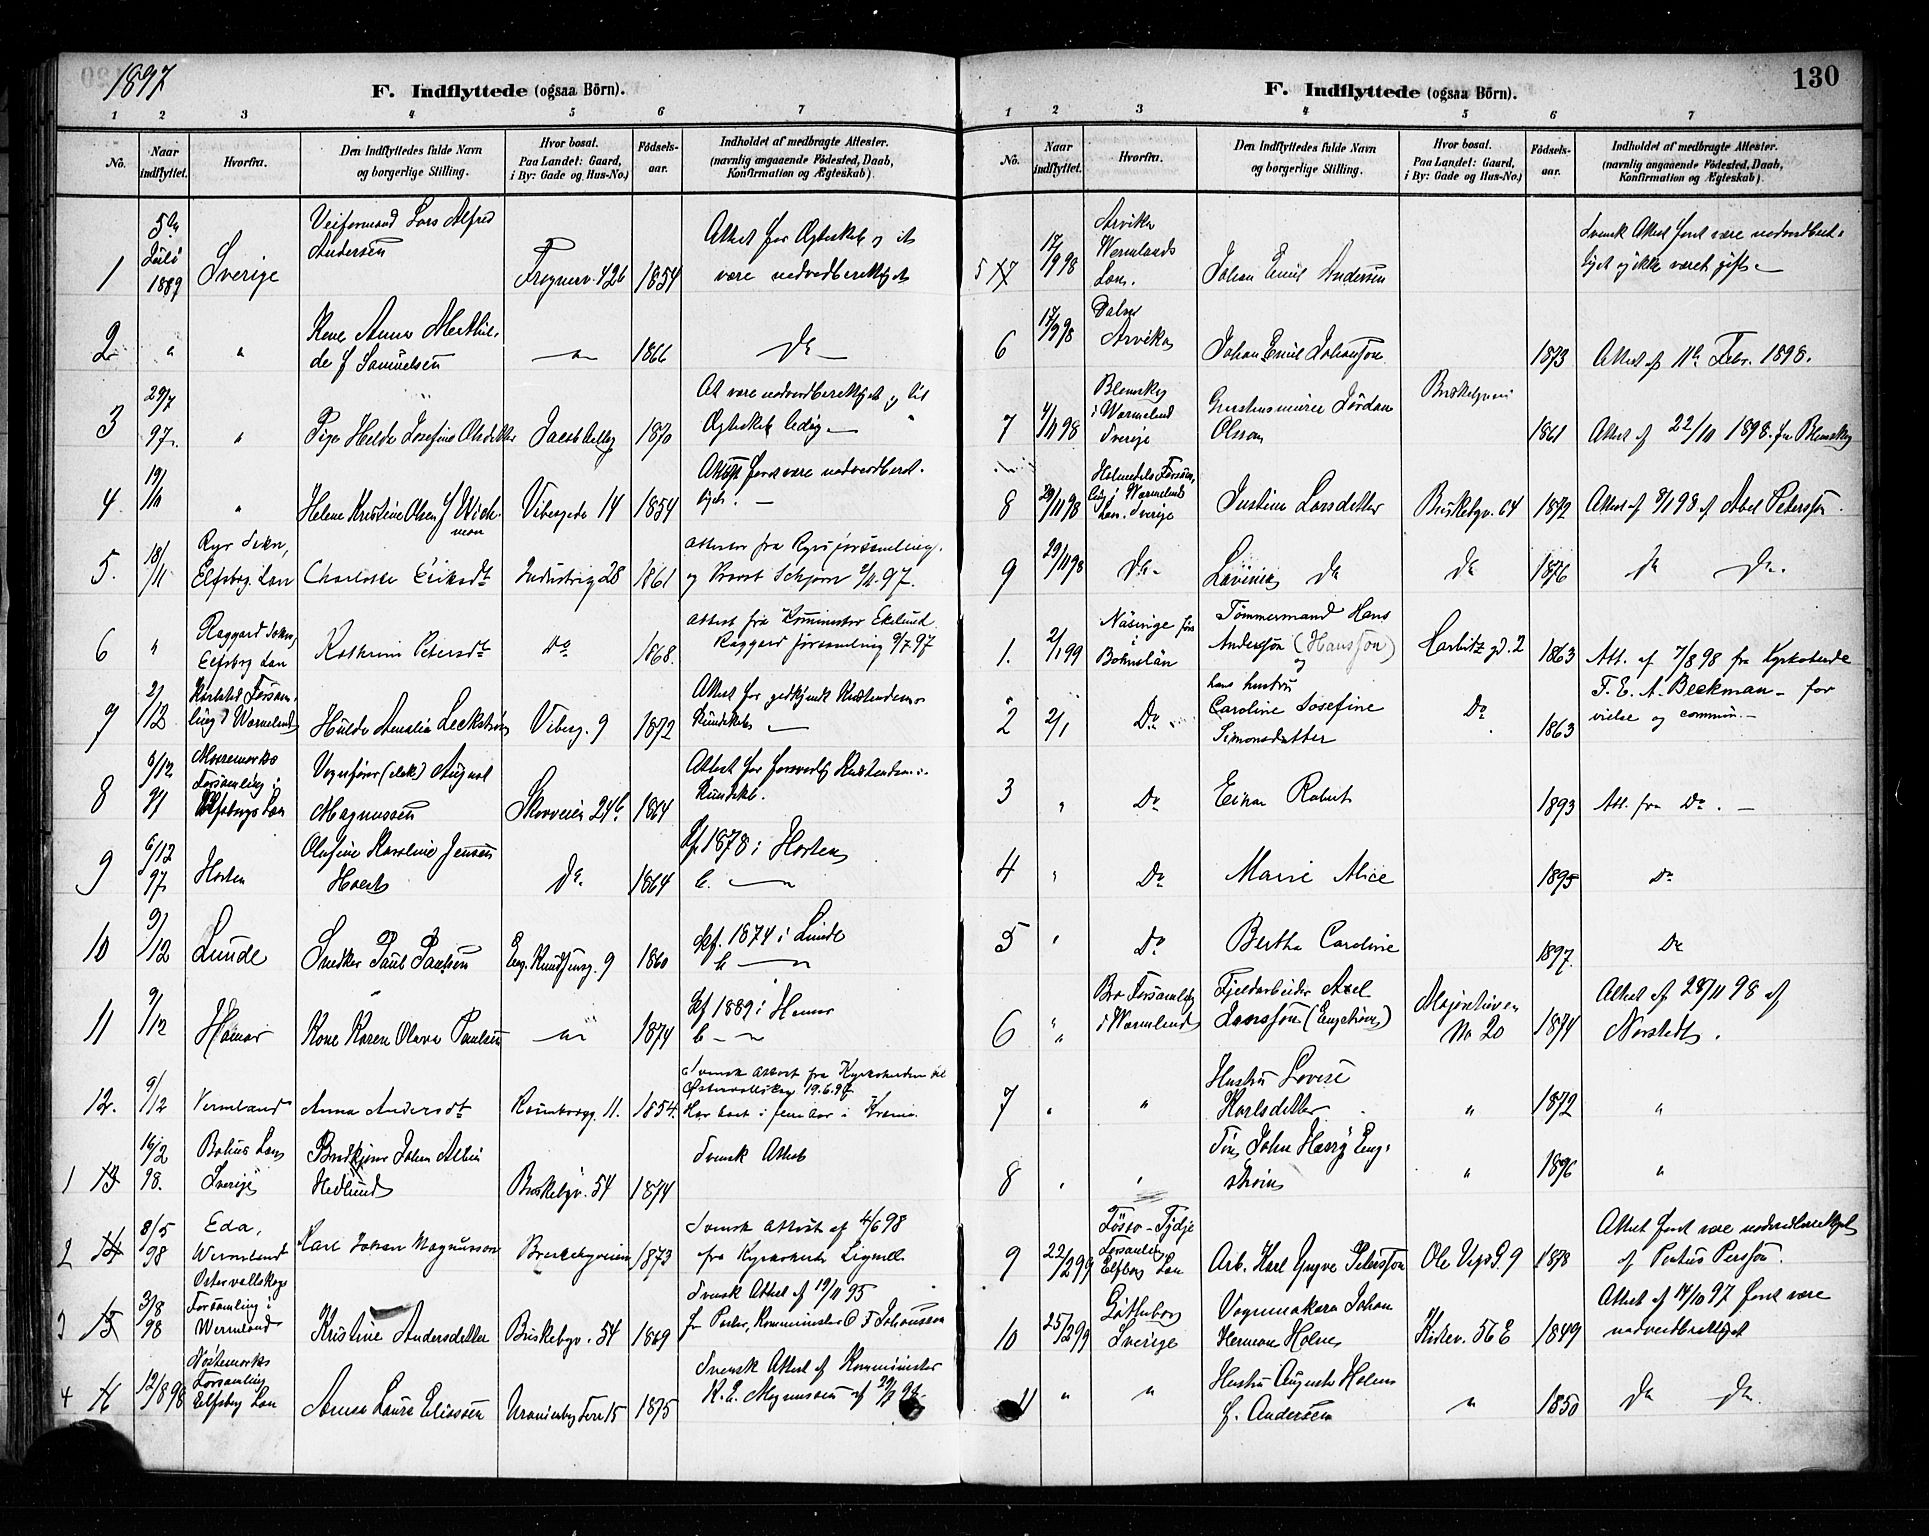 1897
F. Indflyttede (ogsaa Börn).
1 2 3 4 5 6 7
No. Naar indflyttet. Hvorfra. Den Indflyttedes fulde Navn og borgerlige Stilling. Hvor bosat. Paa Landet: Gaard, i By: Gade og Hus-No.) Födsels-aar. Indholdet af medbragte Attester. (navnlig angaaende Födested, Daab, Konfirmation og Ægteskab).
1 1889 Sverige Lars Alfred Andersen Frognerv. 42b 1854 Attest for Ægteskab og at være nadverdberettiget
2 " " Kone Anna Mathilde f. Samuelsen 1866 Do
3 29/7 97. " Pige Hilda Josefine Olsdatter Jacob Aallsg 1870 At være nadverdberettiget og til Ægteskab ledig
4. 19/11 " Helene Kristine Olsen f. Wickman Vibesgade 14 1854 Attest for at være nadverdberettiget.
5. 18/11 Ryr Sokn, Elfsborg Lan Charlotte Eriksdt Industrig 28 1861 Attester fra Ryrs forsamling og Provst Schjørn 97.
6 " Raggard Sokn, Elfsborg Lan Kathrine Petersdt Do 1868. Attest fra Kominister Ekelund Raggard forsamling 9/7 97
7 2/12 Karlstad Forsamling i Wermland Hulda Amalia Leckström Vibesg. 9 1872 Attest for godkjendt Kristendomskundskab
8 6/12 97 Forsamling i Elfsborgs Lan Vognfører August Magnussen Skovveien 24b 1864 Attest for forsvarlig Kristendomskundskb.
9 6/12 97. Horten Olufine Karoline Jensen Do 1864 Kf. 1878 i Horten
10 9/12 Lunde Snedker Paul Paulsen 9 1860 Kf. 1874 i Lunde
11 9/12 Hamar Kone Karen Olava Paulsen 1874 Kf 1889 i Hamar
12. 9/12 Vermland Anna Andersdt 11. 1854. Svensk Attest fra Kyrkoherden til Østervallskog 19.6.97 Har boet i fem Aar i Kra
1 13 16/2 98. Bohus Lan Sverige John Albin Hedlund Briskebyv. 54 1874 Svensk Attest
2 14 8/5 98 Eda, Wermland Karl Johan Magnusson Briskebyveien 1873 Svensk Attest af 4/6 98 fra Kyrkoherde Lignell
3 15 3/8 98 Østervallskogs Forsamling i Wermland Kristine Andersdatter Briskebyv. 54 1869 Svensk Attest af 19/11 95 Komminister Johansson
4 12/8 98 Forsamling Elfsborg Lan Anna Laura Eliassen Uranienborg Terr 15 1875 Svensk Attest af Komminister K. E. Magnusson af 98.
130
F. Indflyttede (ogsaa Börn).
1 2 3 4 5 6 7
No. Naar indflyttet. Hvorfra. Den Indflyttedes fulde Navn og borgerlige Stilling. Hvor bosat. Paa Landet: Gaard, i By: Gade og Hus-No.) Födsels-aar. Indholdet af medbragte Attester. (navnlig angaaende Födested, Daab, Konfirmation og Ægteskab).
5 17 17/9 98 Arvika Wermlands Lan. Johan Emil Andersen Svensk Attest for at være nadverdberettiget og ikke været gift
6 17/9 98 Arvika Johan Emil Johansson 1873 Attest af 11te Febr. 1898.
7 4/11 98 Blomskog i Wermland Sverige Jordan Olsson Briskebyveien 1861 Attest af 22/10 1898. fra Blomskog
8 29/11 98 Holmedals Forsamling i Wermlands Lan. Sverige Justina Larsdatter Briskebyv. 64 1872 Attest af 98 af Abel Petersson.
9 29/11 98 Do Lavinia Do Do 1876 Do Do.
1. 2/1 99 Näsinge i Bohuslän Tømmermand Hans Andersson (Hansson) og Harbitz gd. 2 1863 Att. af 7/8 98 fra Kyrkoherde F. E. A. Beckman - for vielse og commun.
2 2/1 Do hans hustru Caroline Josefine Simonsdatter Do 1863
3 " Do Einar Robert 1893 Att. fra Do.
4 " Do Marie Alice 1895 Do
5 " Do Bertha Caroline 1897. Do
6 " Bro Forsamling i Wermland Fjeldarbeider Axel Larsson (Engström) Majorstuen No 20 1874 Attest af 28/11 98 af Norstedt.
7 " " Hustru Lovise Karlsdatter " 1872 "
8 " " John Harry Engström " 1896 "
9 22/2 99 Tydje Forsamling Elfsborg Lan Arb. Karl Yngve Petersson Ole Vigs G. 9 1878 Attest for at være nadverdberettiget af Pontus Persson.
10 25/2 99 Gøtheborg Sverige Vognmaker Johan Herman Holm Kirkev. 56 E 1849 Attest af 14/10 97 for at være nadverdberettiget
11 " " Hustru Augusta Holm f. Andersen " 1850 Do Do.